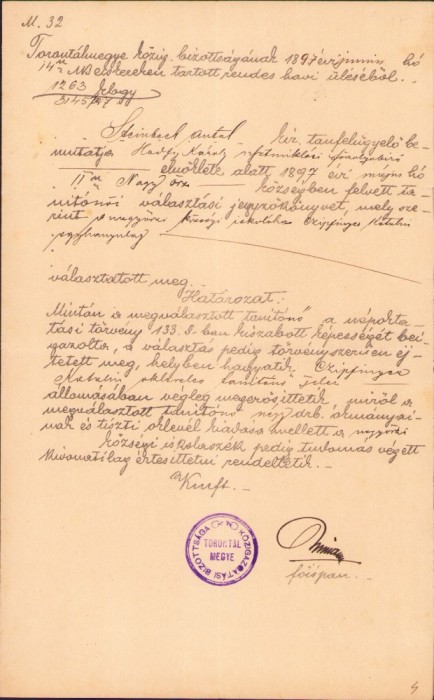 M. 32
Torontálmegye közig. bizottságának 1897 évi junius hó
14én Nbecskereken tartott rendes havi üléséből.
1263 kbogy
3145/97
Steinbach Antal kir. tanfelügyelő be-
mutatja Károly nszentmiklósi főszolgabiró
elnöklete alatt 1897 évi május hó
11én Nagy ősz községben felvett ta-
nitónői választási jegyzőkönyvet, mely sze-
rint a nagyőszi községi iskolába Czipfinger Katalin
egyhangulag
választatott meg.
Határozat:
Miután a megválasztott tanitónő a népokta-
tási törvény 133. §-ban kiszabott képességét bei-
gazolta, a választás pedig törvényszerüen ej-
tetett meg, helyben hagyatik Czipfinger
Katalin okleveles tanitónő jelen
állomásában végleg megerősittetik miről a
megválasztott tanitónő négy drb. okmányai-
nak és tiszti kiadása mellett a nagyőszi
községi iskolaszék pedig tudomás végett
kivonatilag értesittetni rendeltetik. -
Kmft. -
TORONTÁL MEGYE KÖZIGAZGATÁSI BIZOTTSÁGA
főispán.
4